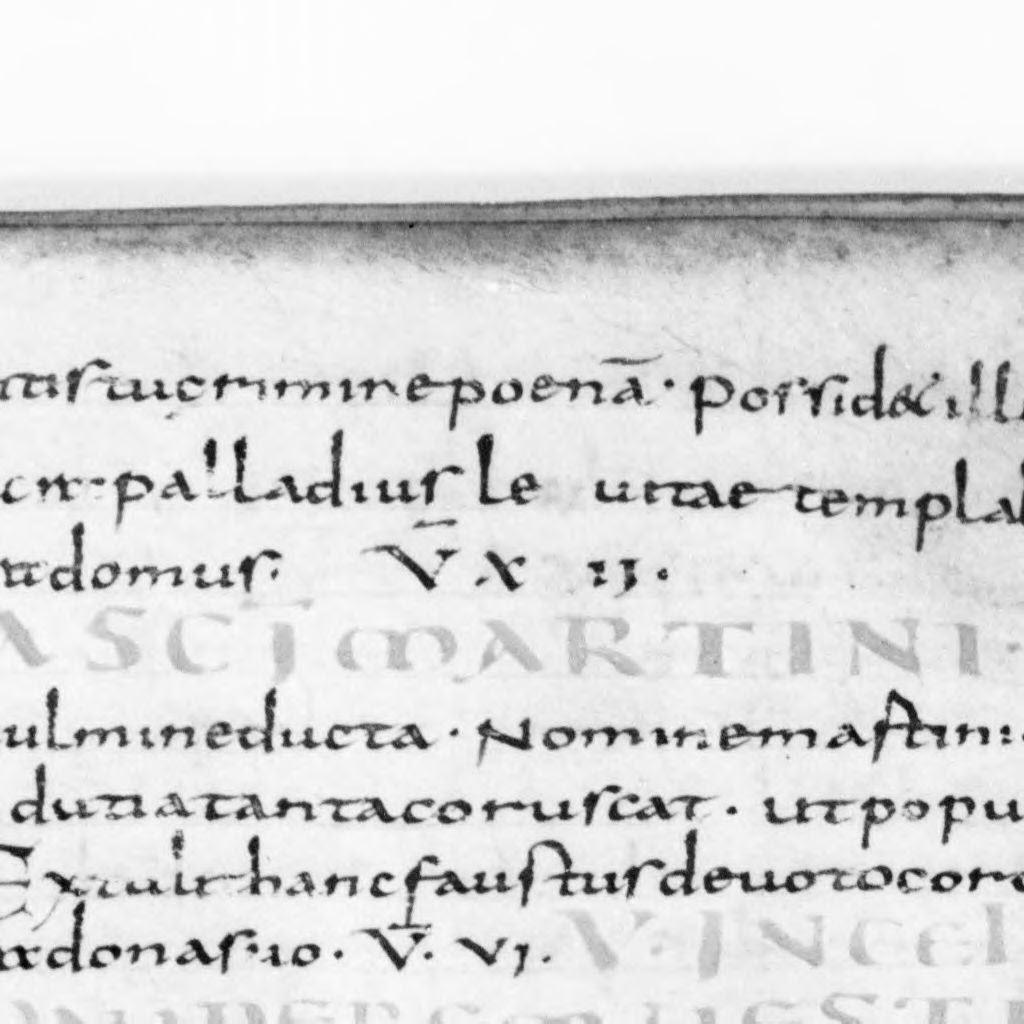 crimine poenā · Possid& ill
palladius le uitae templa
domus · V̄ X II ·
A SCĪ MARTINI ·
ulmine ducta · Nomine mastini
du uia tanta coruscat · ut popu
Extulit hanc faustus deuoto cor
donas · io · V̄ · VI ·
V · INCEI